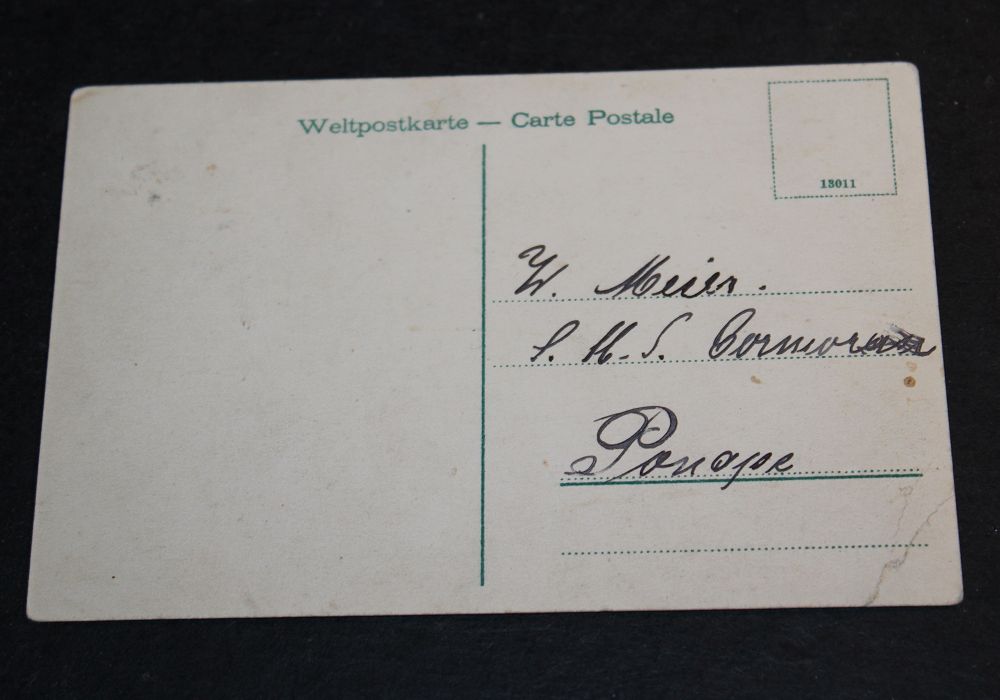 Weltpostkarte — Carte Postale
13011
W. Meier.
S. H. S. Cormoran
Ponape